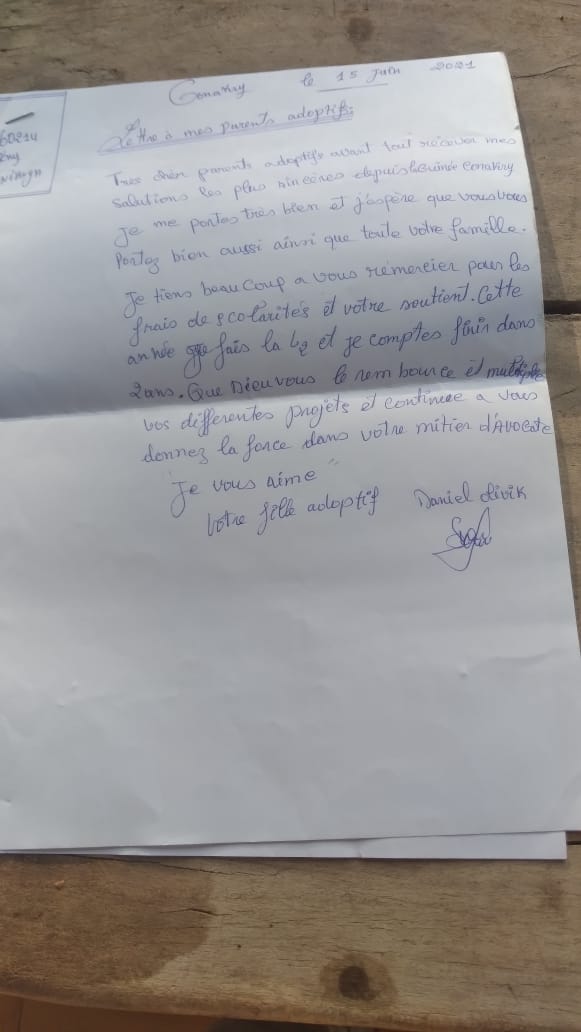 Conakry le 15 Juin 2021
60214
Lettre à mes parents adoptifs:
Tres chèr parents adoptifs avant tout recever mes
salutions les plus sincères depuis la Guinée Conakry
Je me portes très bien et j'espère que vous vous
Portez bien aussi ainsi que toute votre famille.
Je tiens beau coup a vous remercier pour les
frais de scolarités et votre soutient. Cette
année je fais la L2 et je comptes finir dans
2ans. Que Dieu vous le rem bource et multiplie
vos differentes projets et continue a vous
donnez la force dans votre mitier d'Avocate
Je vous aime
Votre fille adoptif Daniel olivik